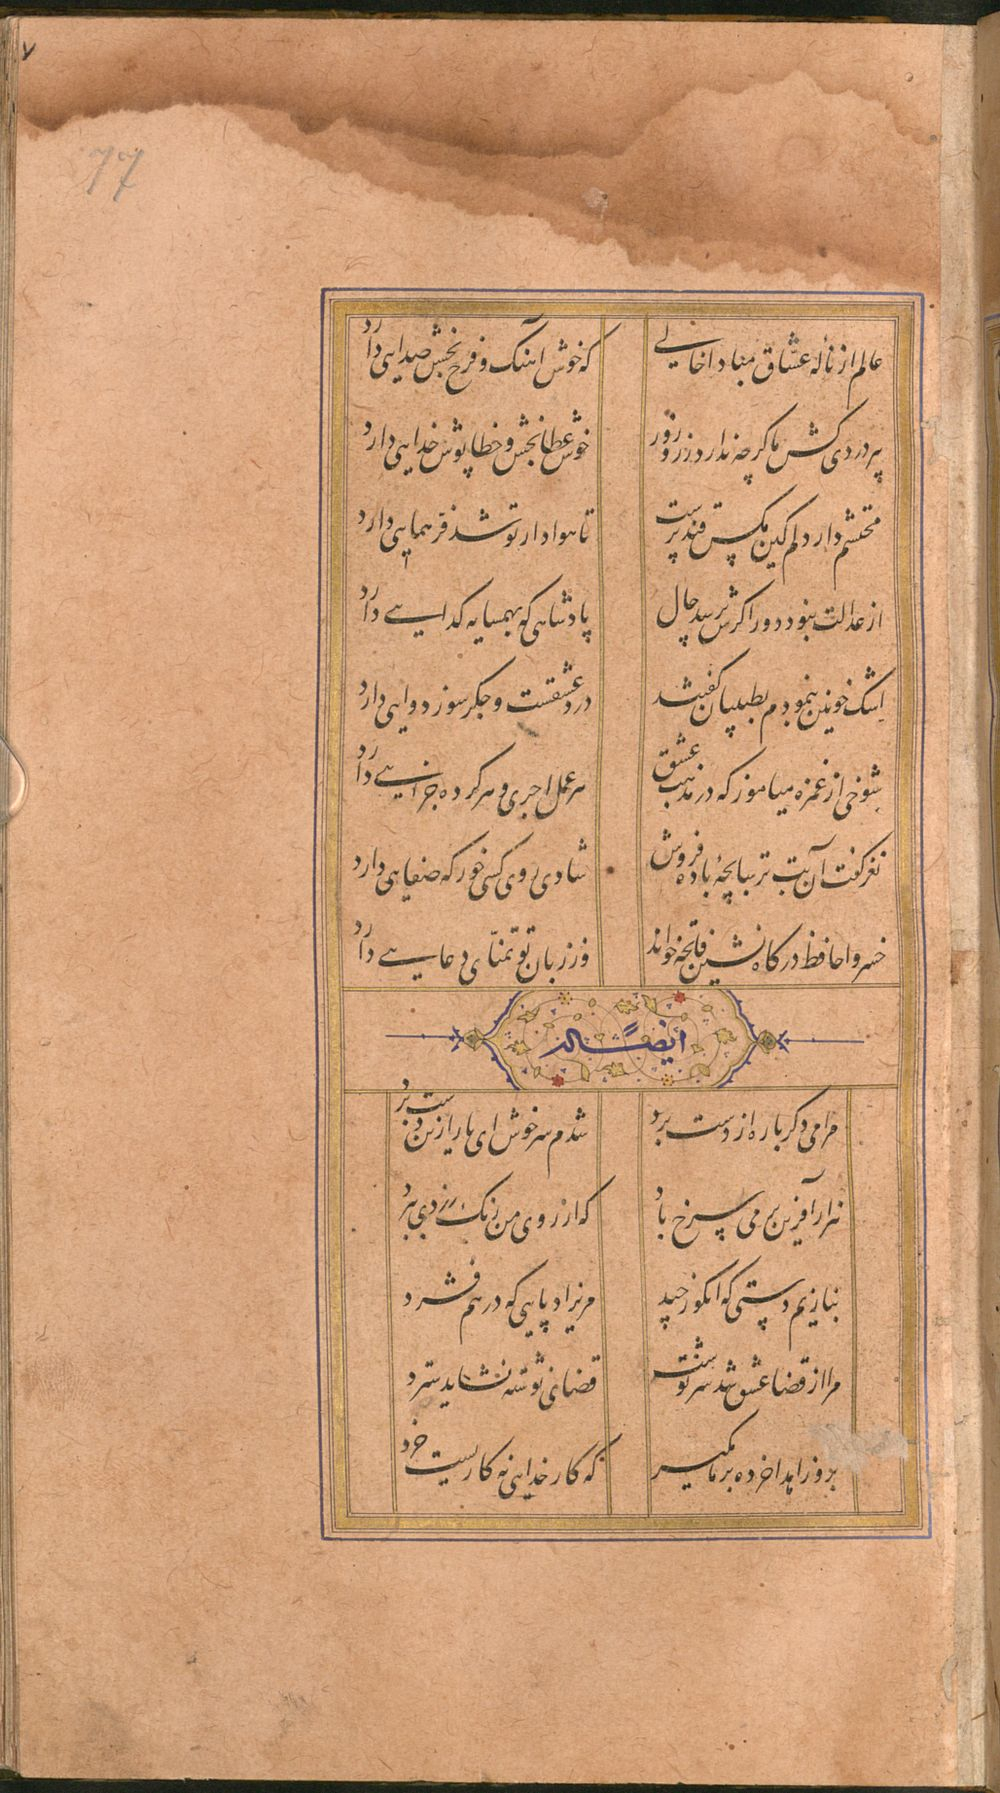 ٧
77
عالم از نالهٔ عشاق مبادا خالی
که خوش آهنگ و فرح بخش صدایی دارد
پیر دردی کش ما گرچه ندارد زر و زور
خوش عطا بخش و خطا پوش خدایی دارد
محتشم دار دلم کین مگس قند پرست
تا هوادار تو شد فر همایی دارد
از عدالت نبود دور اگرش پرسد حال
پادشاهی که بهمسایه گدایی دارد
اشک خونین بنمودم بطبیبان گفتند
درد عشقست و جگر سوز دوایی دارد
شوخی از غمزه میاموز که در مذهب عشق
هر عمل اجری و هر کرده جزایی دارد
نغز گفت آن بت ترسابچهٔ باده فروش
شادی روی کسی خور که صفایی دارد
خسروا حافظ درگاه نشین فاتحه خواند
وز زبان تو تمنای دعایی دارد
ایضاً له
مرا می دگرباره از دست برد
شدم سرخوش ای یار از من دست برد
هزار آفرین بر می سرخ باد
که از روی من رنگ زردی ببرد
بنازیم دستی که انگور چید
مریزاد پایی که در هم فشرد
مرا از قضا عشق شد سرنوشت
قضای نوشته نشاید سترد
برو زاهدا خرده بر ما مگیر
که کار خدایی نه کاریست خرد